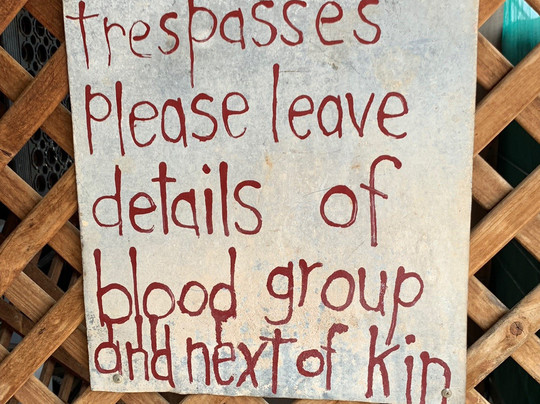 trespasses
please leave
details of
blood group
and next of kin